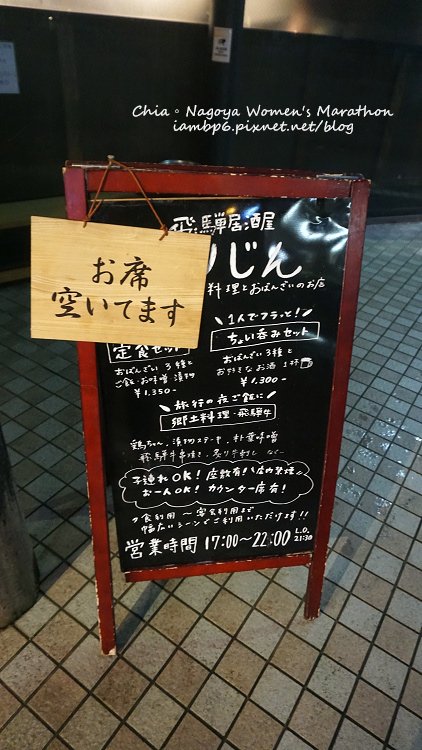 Chia。Nagoya Women's Marathon
iambp6.pixnet.net/blog
飛騨居酒屋
じん
料理とおばんざいのお店
お席
空いてます
定食セット
おばんざい3種と
ご飯・お味噌 漬物
¥1,350-
1人でフラっと!
ちょい呑みセット
おばんざい3種と
お好きなお酒1杯
¥1,300-
旅行の夜ご飯に
郷土料理・飛騨牛
鶏ちゃん、漬物ステーキ、朴葉味噌
飛騨牛串焼き、炙り牛刺し など
子連れOK! 座敷有! 店内禁煙
お一人OK! カウンター席有!
夕食利用〜宴会利用まで
幅広いシーンでご利用いただけます!!
営業時間 17:00〜22:00 L.O. 21:30